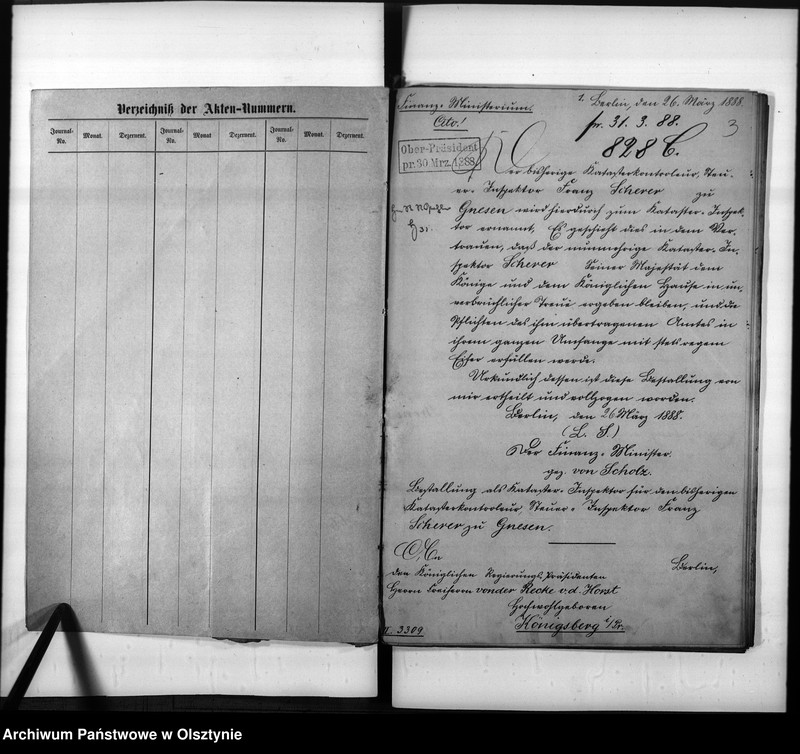 Verzeichniß der Akten-Nummern.
Journal-No. Monat. Dezernent. Journal-No. Monat Dezernent. Journal-No. Monat. Dezernent.
Finanz-Ministerium.
Cito!
Berlin, den 26. März 1888.
pr. 31. 3. 88.
3
828 C.
Ober-Präsident
pr. 30 Mrz. 1888
Der bisherige Katasterkontroleur, Steu-
er-Inspektor Franz Scherer zu
Gnesen wird hierdurch zum Kataster-Inspek-
tor ernannt. Es geschieht dies in dem Ver-
trauen, daß der nunmehrige Kataster-In-
spektor Scherer Seiner Majestät dem
Könige und dem Königlichen Hause in un-
verbrüchlicher Treue ergeben bleiben, und die
Pflichten des ihm übertragenen Amtes in
ihrem ganzen Umfange mit stets regem
Eifer erfüllen werde.
Urkundlich dessen ist diese Bestallung von
mir ertheilt und vollzogen worden.
Berlin, den 26 März 1888.
(L. S.)
Der Finanz-Minister.
gez. von Scholz.
Bestallung als Kataster-Inspektor für den bisherigen
Katasterkontroleur, Steuer-Inspektor Franz
Scherer zu Gnesen.
Berlin,
den Königlichen Regierungs-Präsidenten
Herrn Freiherrn von der Recke v. d. Horst
Hochwohlgeboren
Königsberg i/Pr.
3309
Archiwum Państwowe w Olsztynie